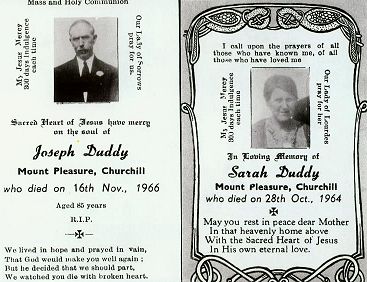 Mass and Holy Communion
My Jesus Mercy
300 days Indulgence
each time
Our Lady of Sorrows
pray for
Sacred Heart of Jesus have mercy
on the soul of
Joseph Duddy
Mount Pleasure, Churchill
who died on 16th Nov., 1966
Aged 85 years
R.I.P.
We lived in hope and prayed in vain,
That God would make you well again;
But he decided that we should part,
We watched you die with broken heart.
I call upon the prayers of all
those who have known me, of all
those who have loved me
My Jesus Mercy
300 days Indulgence
each time
Our Lady of Lourdes
pray for her
In Loving Memory of
Sarah Duddy
Mount Pleasure, Churchill
who died on 28th Oct., 1964
May you rest in peace dear Mother
In that heavenly home above
With the Sacred Heart of Jesus
In His own eternal love.